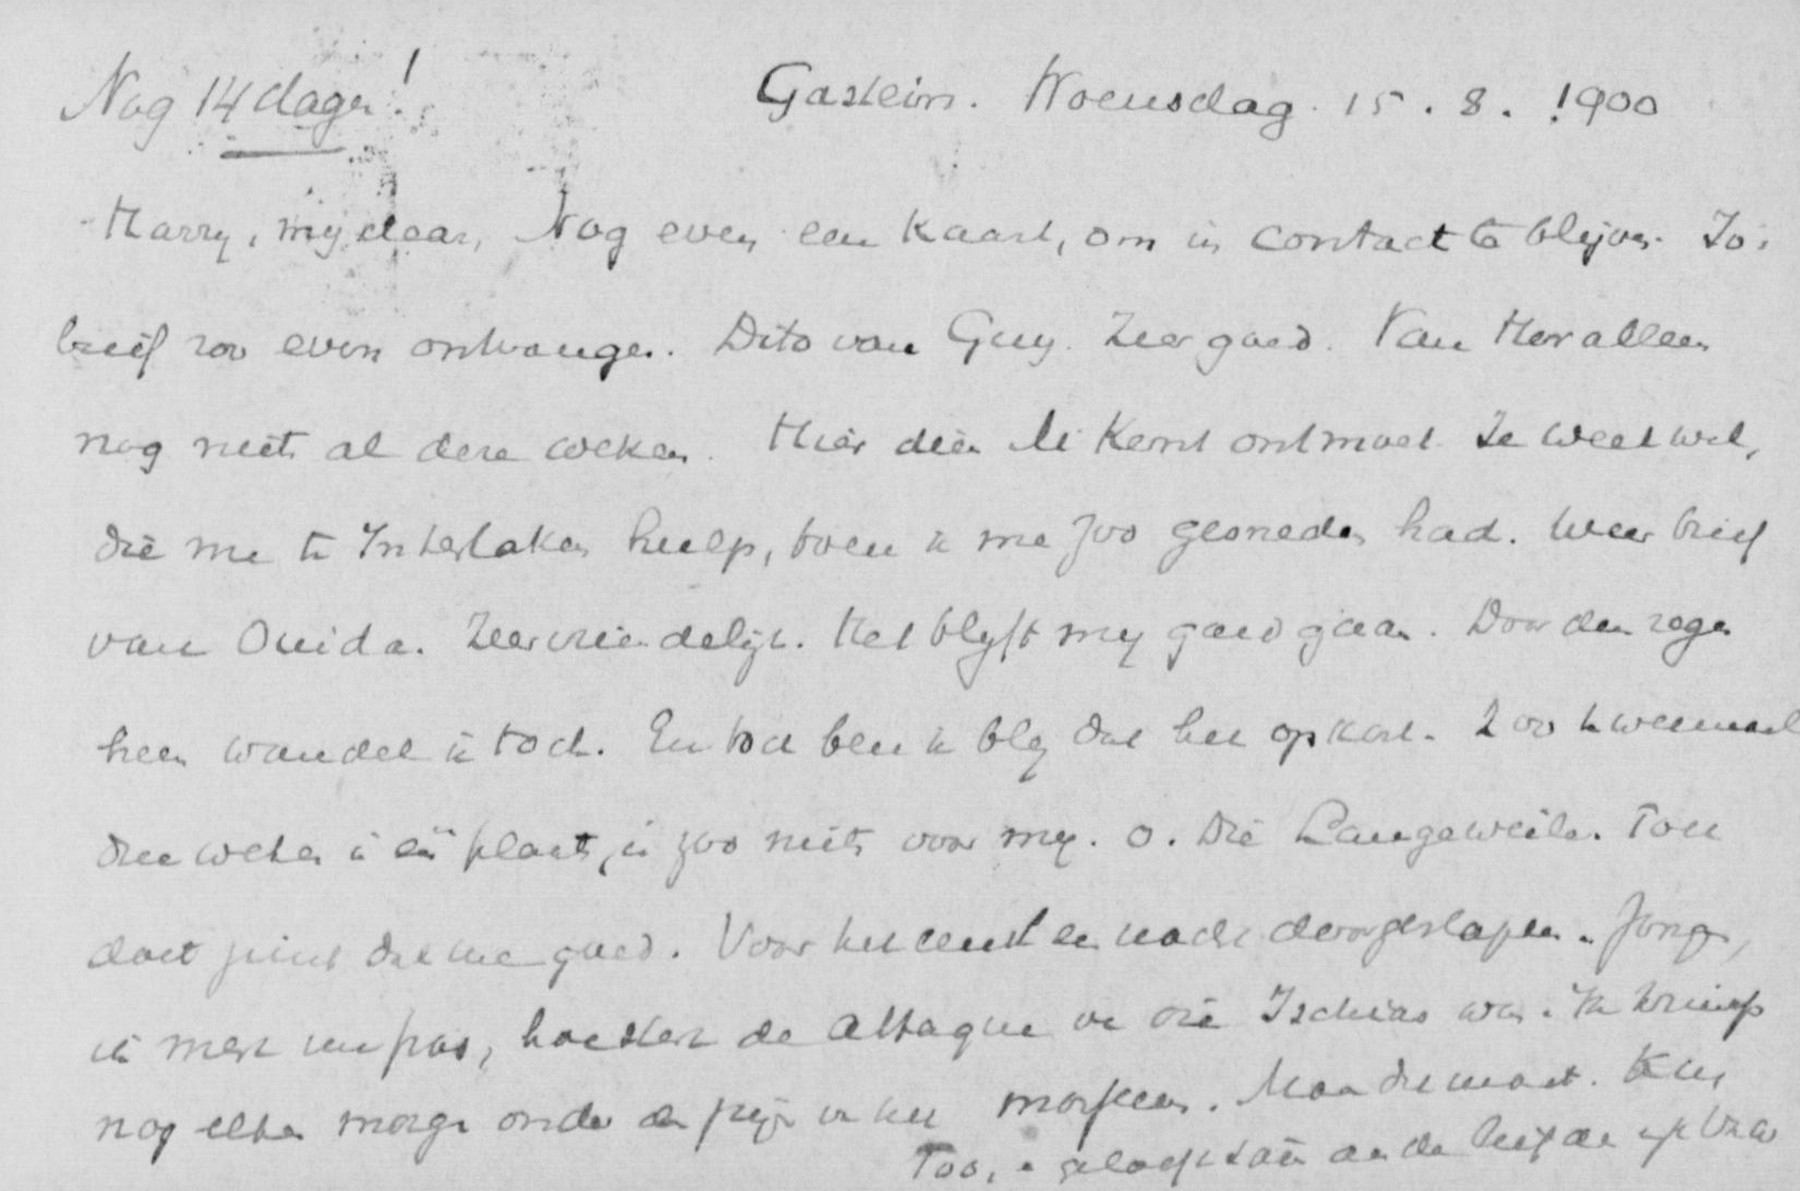 Nog 14 dagen!
Gastein. Woensdag. 15. 8. 1900
Harry, my dear, Nog even een kaart, om in contact te blijven. Jo's
brief zoo even ontvangen. Dito van Guy. Zeer goed. Van Her alleen
nog niets al deze weken. Hier dien Kent ontmoet. Je weet wel,
die me te Interlaken hielp, toen ik me zoo gesneden had. Weer brief
van Ouida. Zeer vriendelijk. Het blyft my goed gaan. Door den regen
heen wandel ik toch. En toch ben ik bly dat het opkort. Zoo tweemaal
drie weken in één plaats, is zoo niets voor my. O. Die Langeweile. Toch
doet juist dat me goed. Voor het eerst een nacht doorgeslapen. Jongen,
ik merk nu pas, hoe sterk de attaque van die Ischias was. Ik krimp
nog elken morgen onder de pijn in het masseeren. Maar dat moet. Kus
Too, en geloof aan de liefde